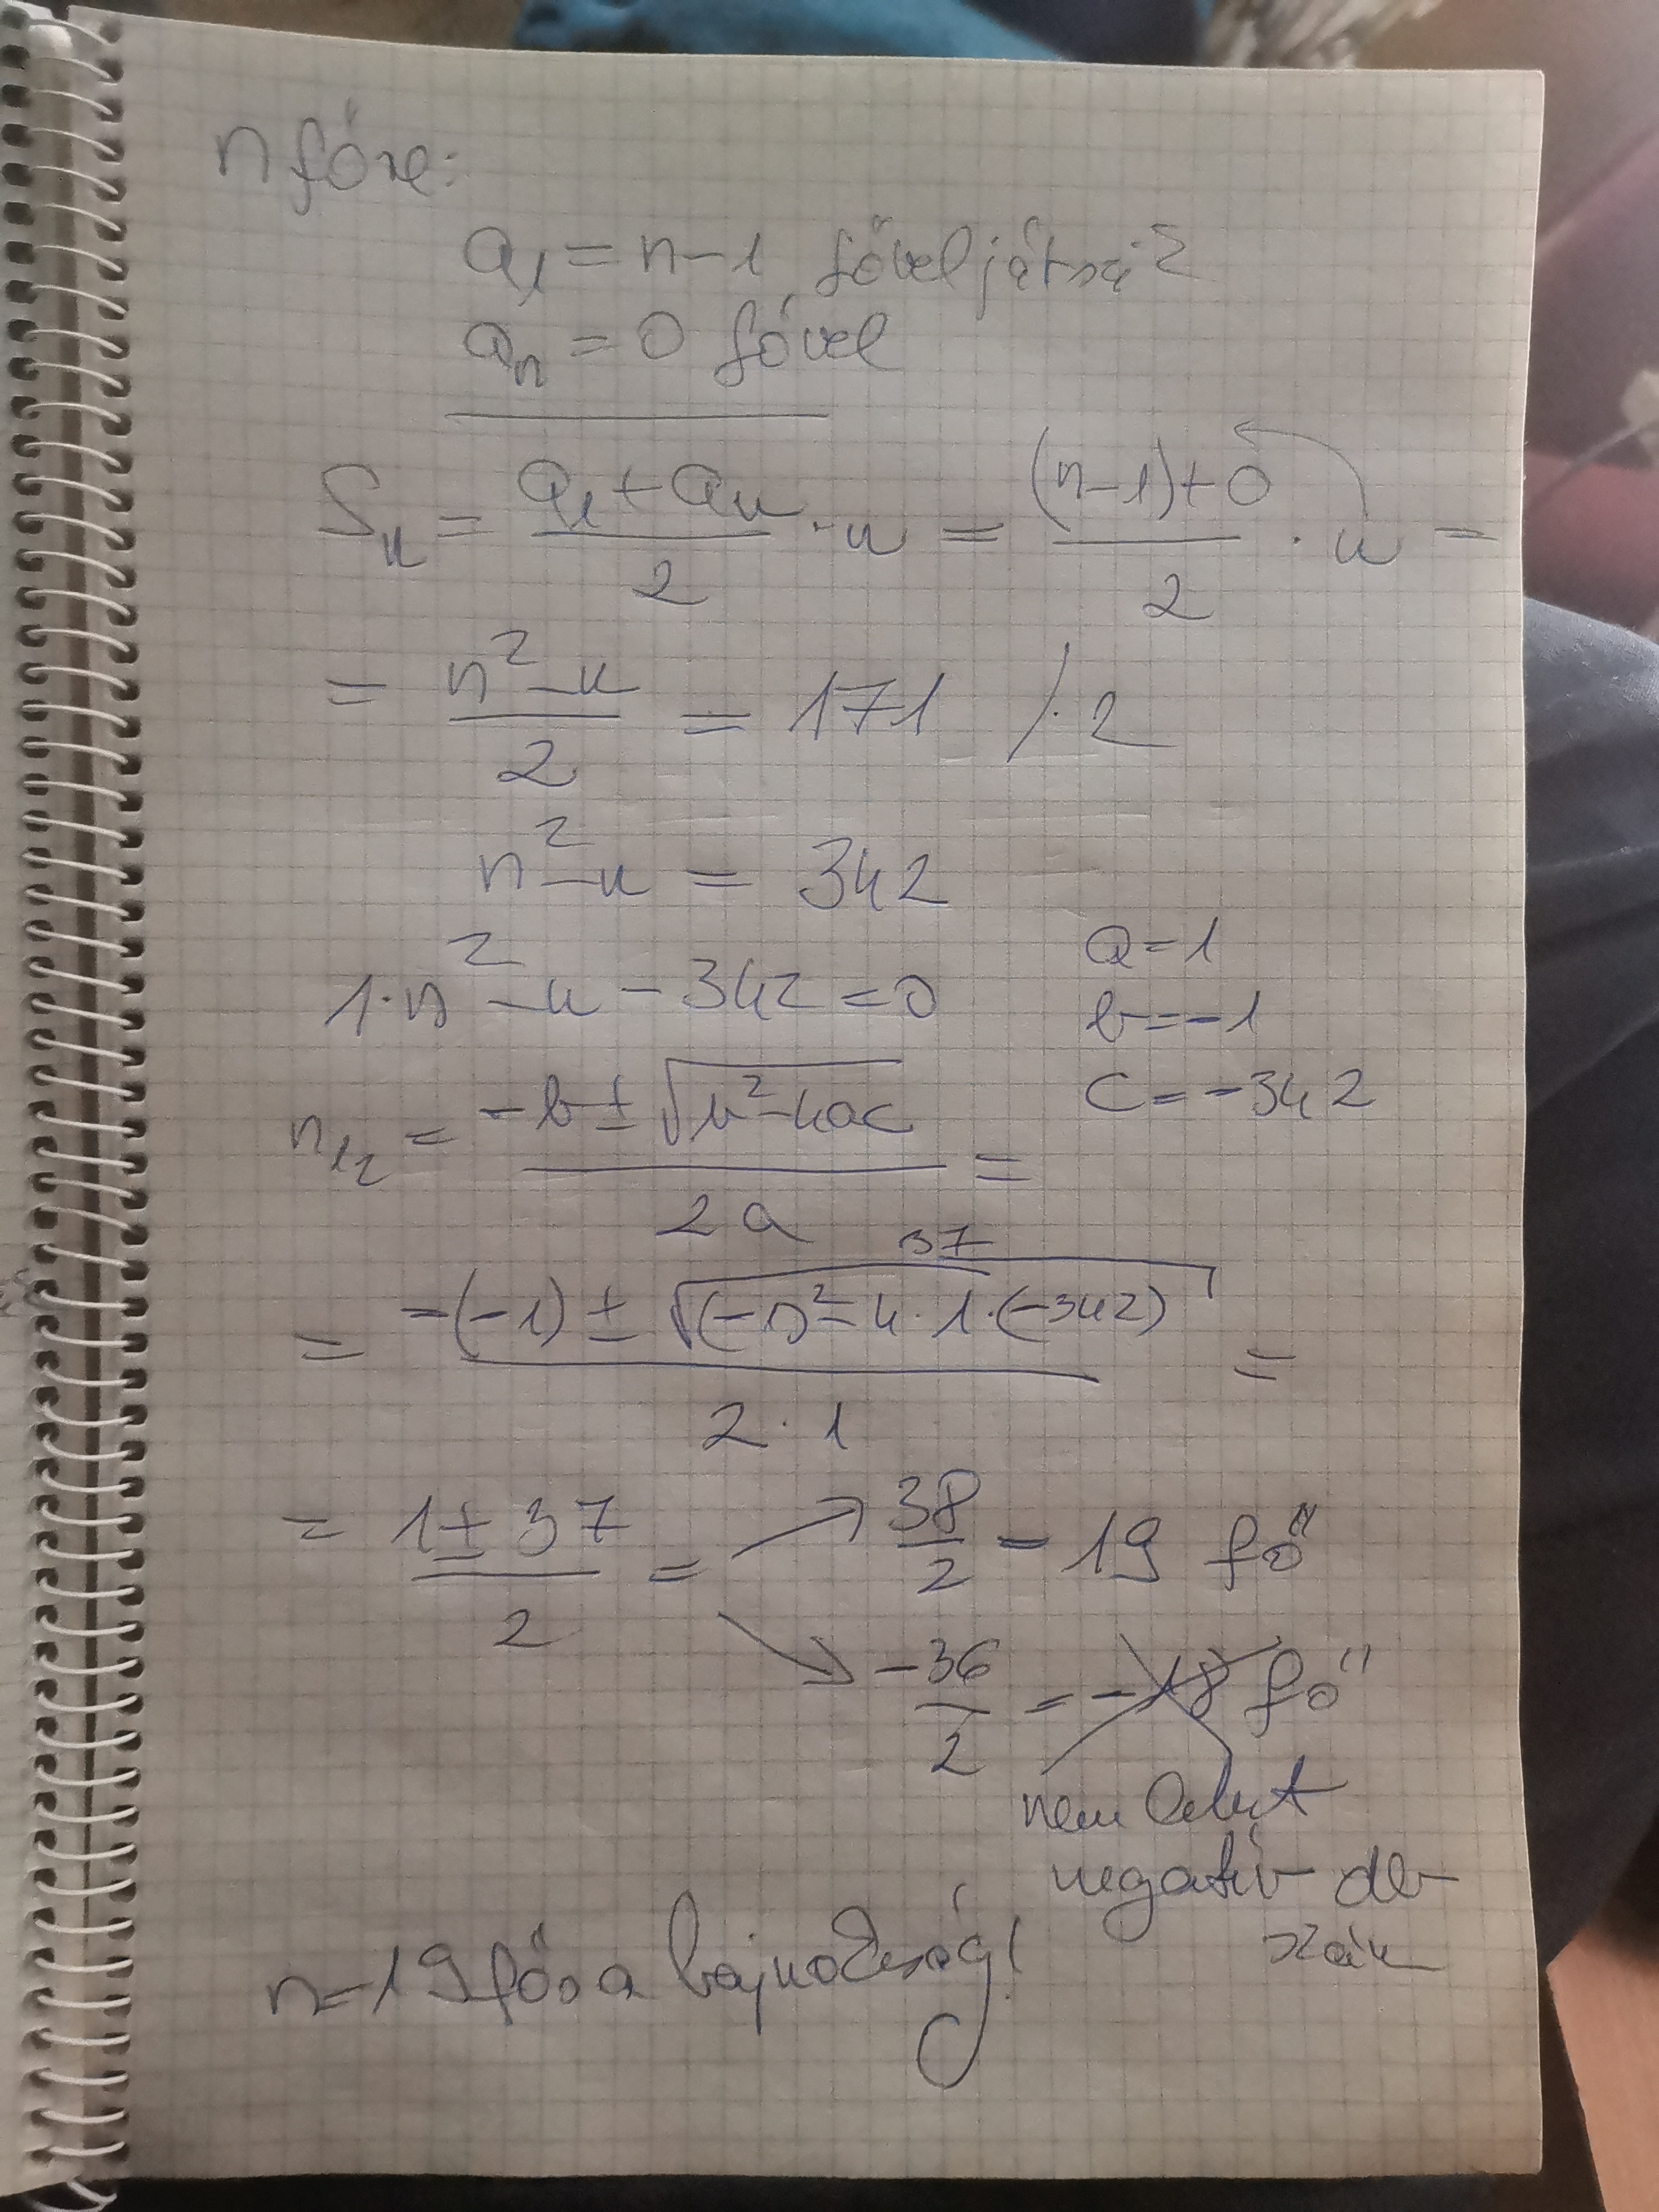 n főre:
a₁ = n-1 fővel játszi
aₙ = 0 fővel
Sₙ = (a₁ + aₙ)/2 · n = ((n-1)+0)/2 · n =
= (n² - n)/2 = 171 /·2
n² - n = 342
1·n² - n - 342 = 0
a = 1
b = -1
c = -342
n₁₂ = (-b ± √(b² - 4ac))/(2a) =
37
= (-(-1) ± √((-1)² - 4·1·(-342)))/(2·1) =
= (1 ± 37)/2 = ↗ 38/2 = 19 fő
↘ -36/2 = -18 fő
nem lehet
negatív db
szám
n=19 fős a bajnokság!